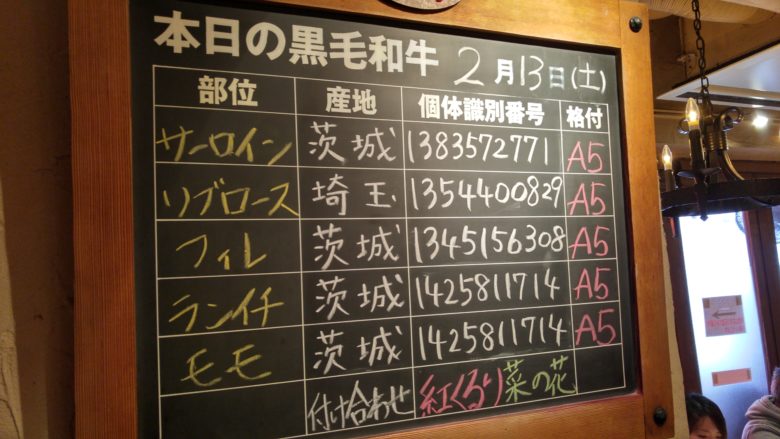 本日の黒毛和牛 2月13日(土)
部位 産地 個体識別番号 格付
サーロイン 茨城 1383572771 A5
リブロース 埼玉 1354400829 A5
フィレ 茨城 1345156308 A5
ランイチ 茨城 1425811714 A5
モモ 茨城 1425811714 A5
付け合わせ 紅くるり 菜の花